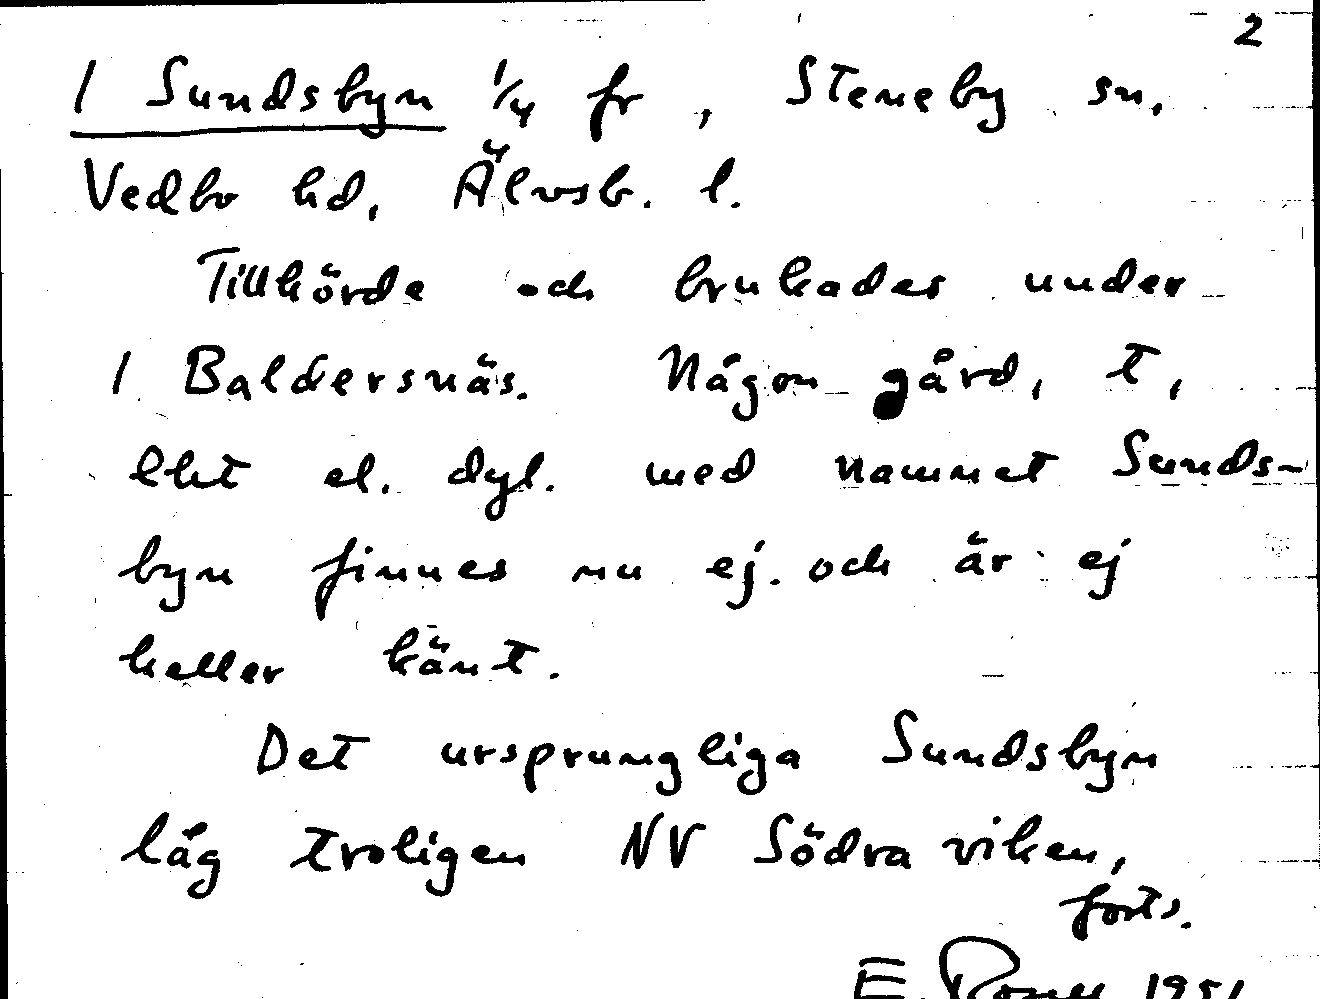 2
1 Sundsbyn 1/4 fr, Steneby sn,
Vedbo hd, Älvsb. l.
Tillhörde och brukades under
1 Baldersnäs. Någon gård, t,
lht el. dyl. med namnet Sunds-
byn finnes nu ej. och är ej
heller känt.
Det ursprungliga Sundsbyn
låg troligen NV Södra viken,
forts.
E. 1951